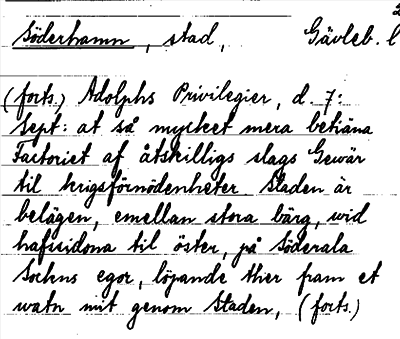 Söderhamn, stad, Gävleb. l
(forts.) Adolphs Privilegier, d. 7:
Sept: at så mycket mera betiäna
Factoriet af åtskilligs slags Gewär
til krigsförnödenheter Staden är
belägen, emellan stora bärg, wid
hafssidona til öster, på Söderala
Sochns egor, löpande ther fram et
watn mit genom Staden, (forts.)